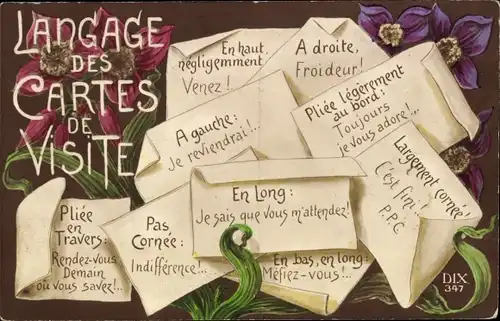 LANGAGE
DES
CARTES
DE
VISITE
En haut,
négligemment
Venez!
A droite,
Froideur!
Pliée légèrement
au bord:
Toujours
je vous adore!..
A gauche:
Je reviendrai!...
Largement cornée:
C'est fini!...
P.P.C.
En Long:
Je sais que vous m'attendez!
Pliée
en
Travers:
Rendez-vous
Demain
où vous savez!..
Pas
Cornée:
Indifférence!..
En bas, en long:
Méfiez-vous!...
DIX
347